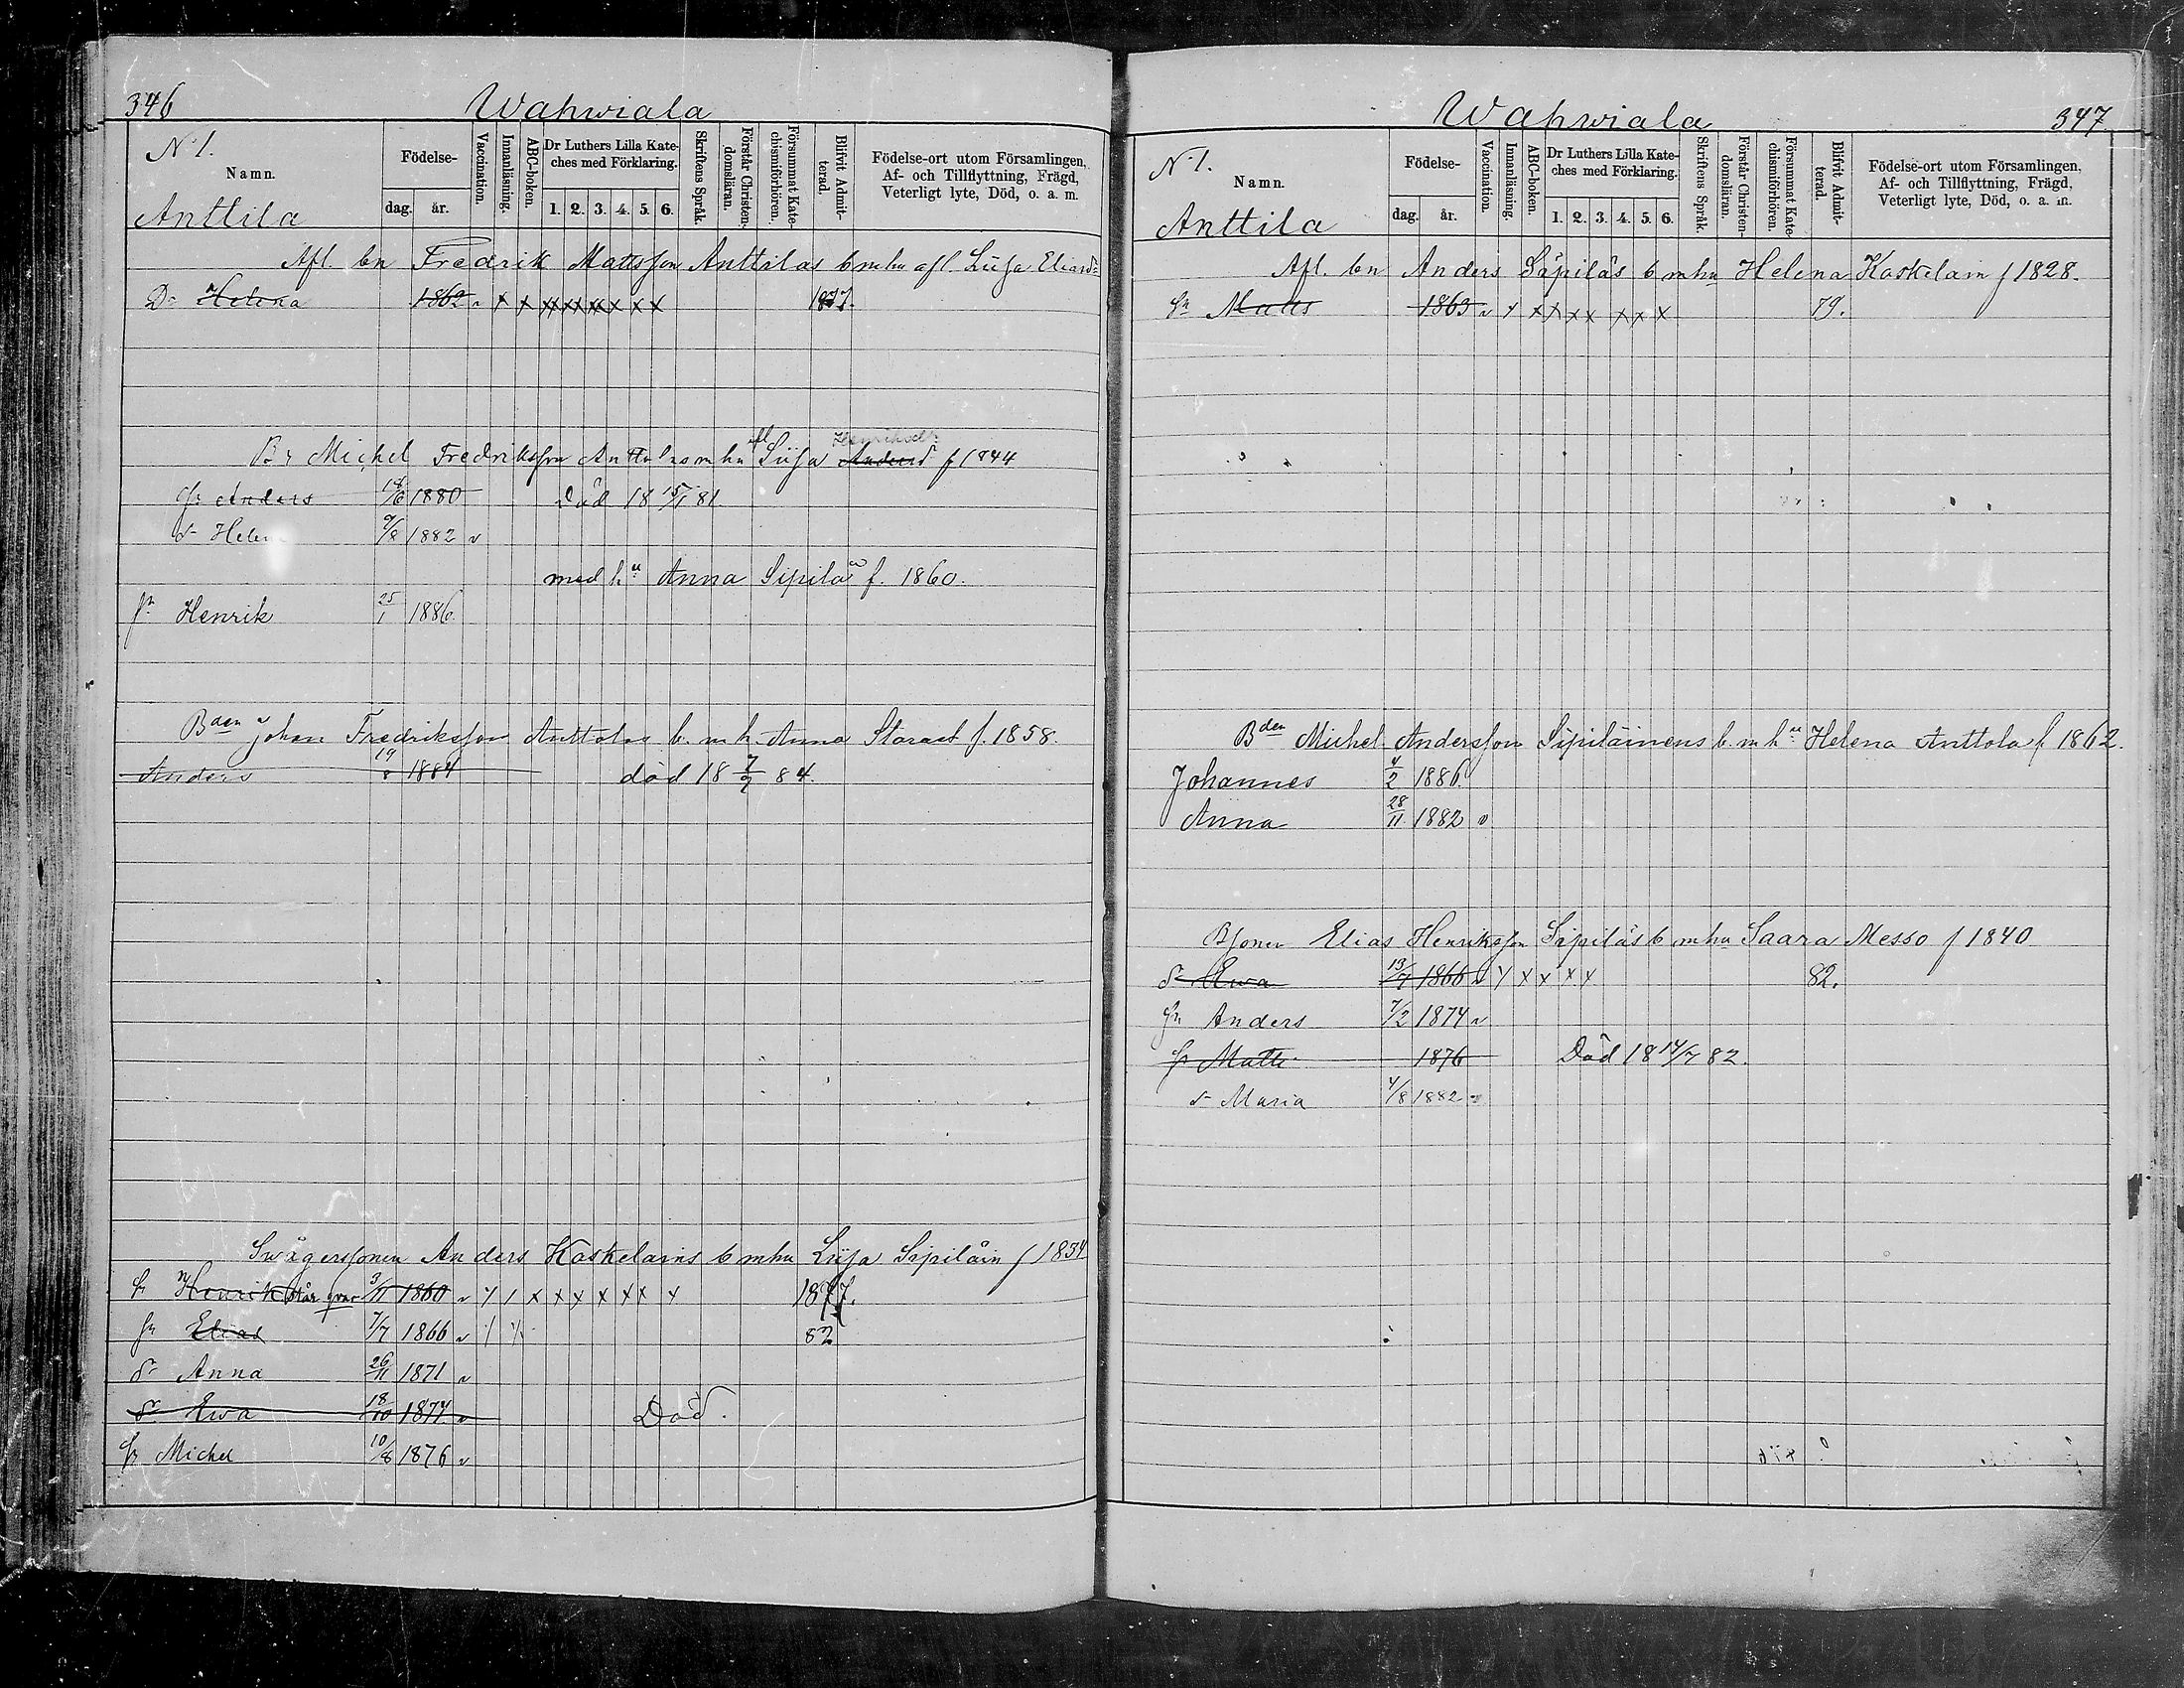 346
Wahwiala
N:1.
Namn.
Anttila
Födelse-
dag. år.
Vaccination.
Innanläsning.
ABC-boken.
Dr Luthers Lilla Kate-
ches med Förklaring.
1. 2. 3. 4. 5. 6.
Skriftens Språk.
Förstår Christen-
domsläran.
Försummat Kate-
chismiförhören.
Blifvit Admit-
terad.
Födelse-ort utom Församlingen,
Af- och Tillflyttning, Frägd,
Veterligt lyte, Död, o. a. m.
Afl. bn Fredrik Mattsson Anttilas b mhu afl. Liisa Eliasdr
Dr Helena 1862 v x x xx xx xx x x x 1877.
Henriksdr
Br Michel Fredriksson Anttolas mhu afl Liisa Andersd f 1844
sn Anders 18/6 1880 Död 18 15/1 81.
dr Helena 9/8 1882 v
med hu Anna Sipilä f. 1860.
sn Henrik 25/1 1886.
Bden Johan Fredriksson Anttolas b. m h. Anna Starast f. 1858.
Anders 1884 död 18 7/9 84.
Swågersonen Anders Koskelains b mhu Liisa Sipiläin f 1834
sn Henrik står qvar 3/11 1860 v x x x x x x x x x 1877.
sn Elias 7/7 1866 v x x 82
dr Anna 26/11 1871 v
dr Ewa 18/10 1874 v Död.
sn Michel 10/8 1876 v
Wahwiala
347.
N:1.
Namn.
Anttila
Födelse-
dag. år.
Vaccination.
Innanläsning.
ABC-boken.
Dr Luthers Lilla Kate-
ches med Förklaring.
1. 2. 3. 4. 5. 6.
Skriftens Språk.
Förstår Christen-
domsläran.
Försummat Kate-
chismiförhören.
Blifvit Admit-
terad.
Födelse-ort utom Församlingen,
Af- och Tillflyttning, Frägd,
Veterligt lyte, Död, o. a. m.
Afl. bn Anders Sipiläs b mhu Helena Koskelain f 1828.
Sn Matts 1863 v x x x x x x x x 79.
Bden Michel Andersson Sipiläinens b. m hu Helena Anttola f. 1862.
Johannes 4/2 1886.
Anna 28/11 1882 v
Bsonen Elias Henriksson Sipiläs b mhu Saara Messo f 1840
dr Ewa 13/7 1866 v x x x x x 82.
sn Anders 7/2 1874 v
sn Matts 1876 Död 18 14/7 82.
dr Maria 4/8 1882 v